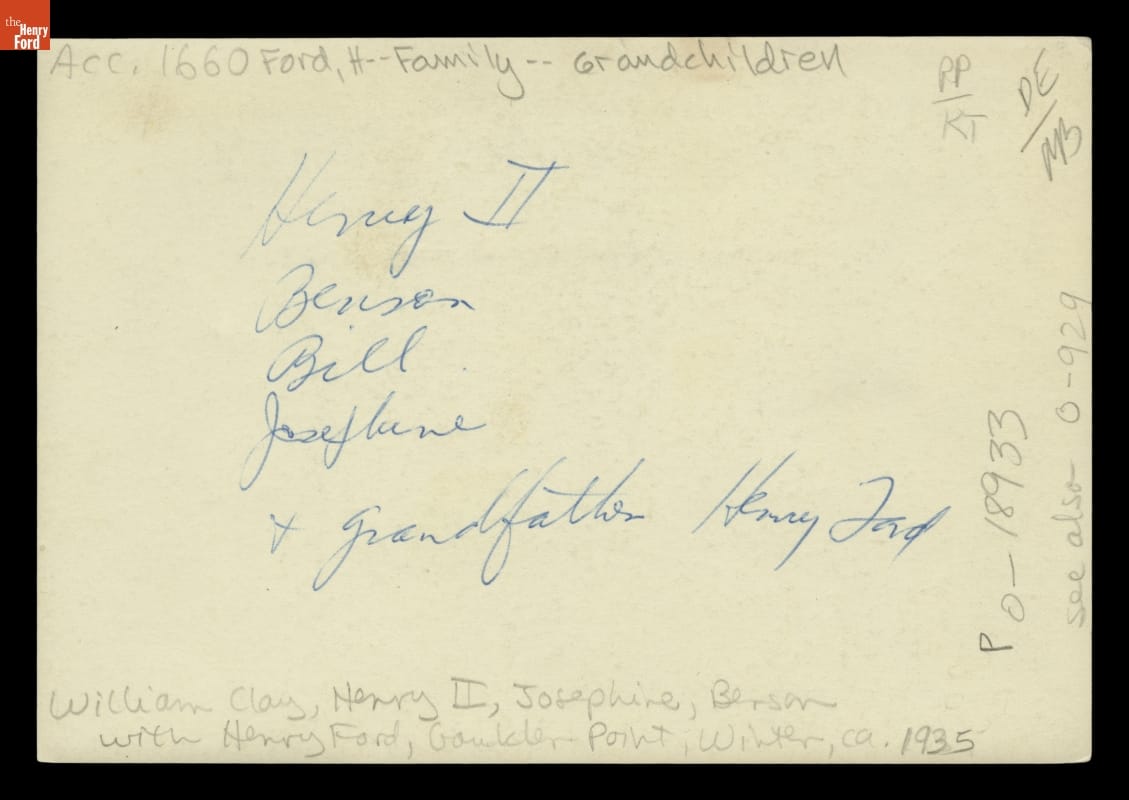 the
Henry
Ford
Acc. 1660 Ford, H--Family-- Grandchildren
PP
KT
DE
MB
Henry II
Benson
Bill
Josephine
+ grandfather Henry Ford
P O-18933
see also O-929
William Clay, Henry II, Josephine, Benson
with Henry Ford, Gaukler Point, Winter, ca. 1935